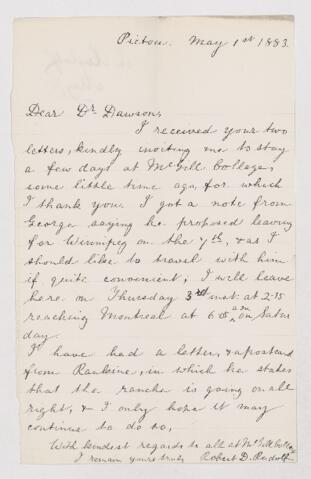 Pictou. May 1st 1883.
Dear Dr. Dawson,
I received your two
letters, kindly inviting me to stay
a few days at McGill College,
some little time ago, for which
I thank you. I got a note from
George saying he proposed leaving
for Winnipeg on the 7th, & as I
should like to travel with him
if quite convenient; I will leave
here on Thursday 3rd inst at 2-15
reaching Montreal at 6 am on Satur
day.
I have had a letter, & a postcard
from Rankine, in which he states
that the ranche is going on all
right, & I only hope it may
continue to do so,
With kindest regards to all at McGill College
I remain yours truly Robert D.